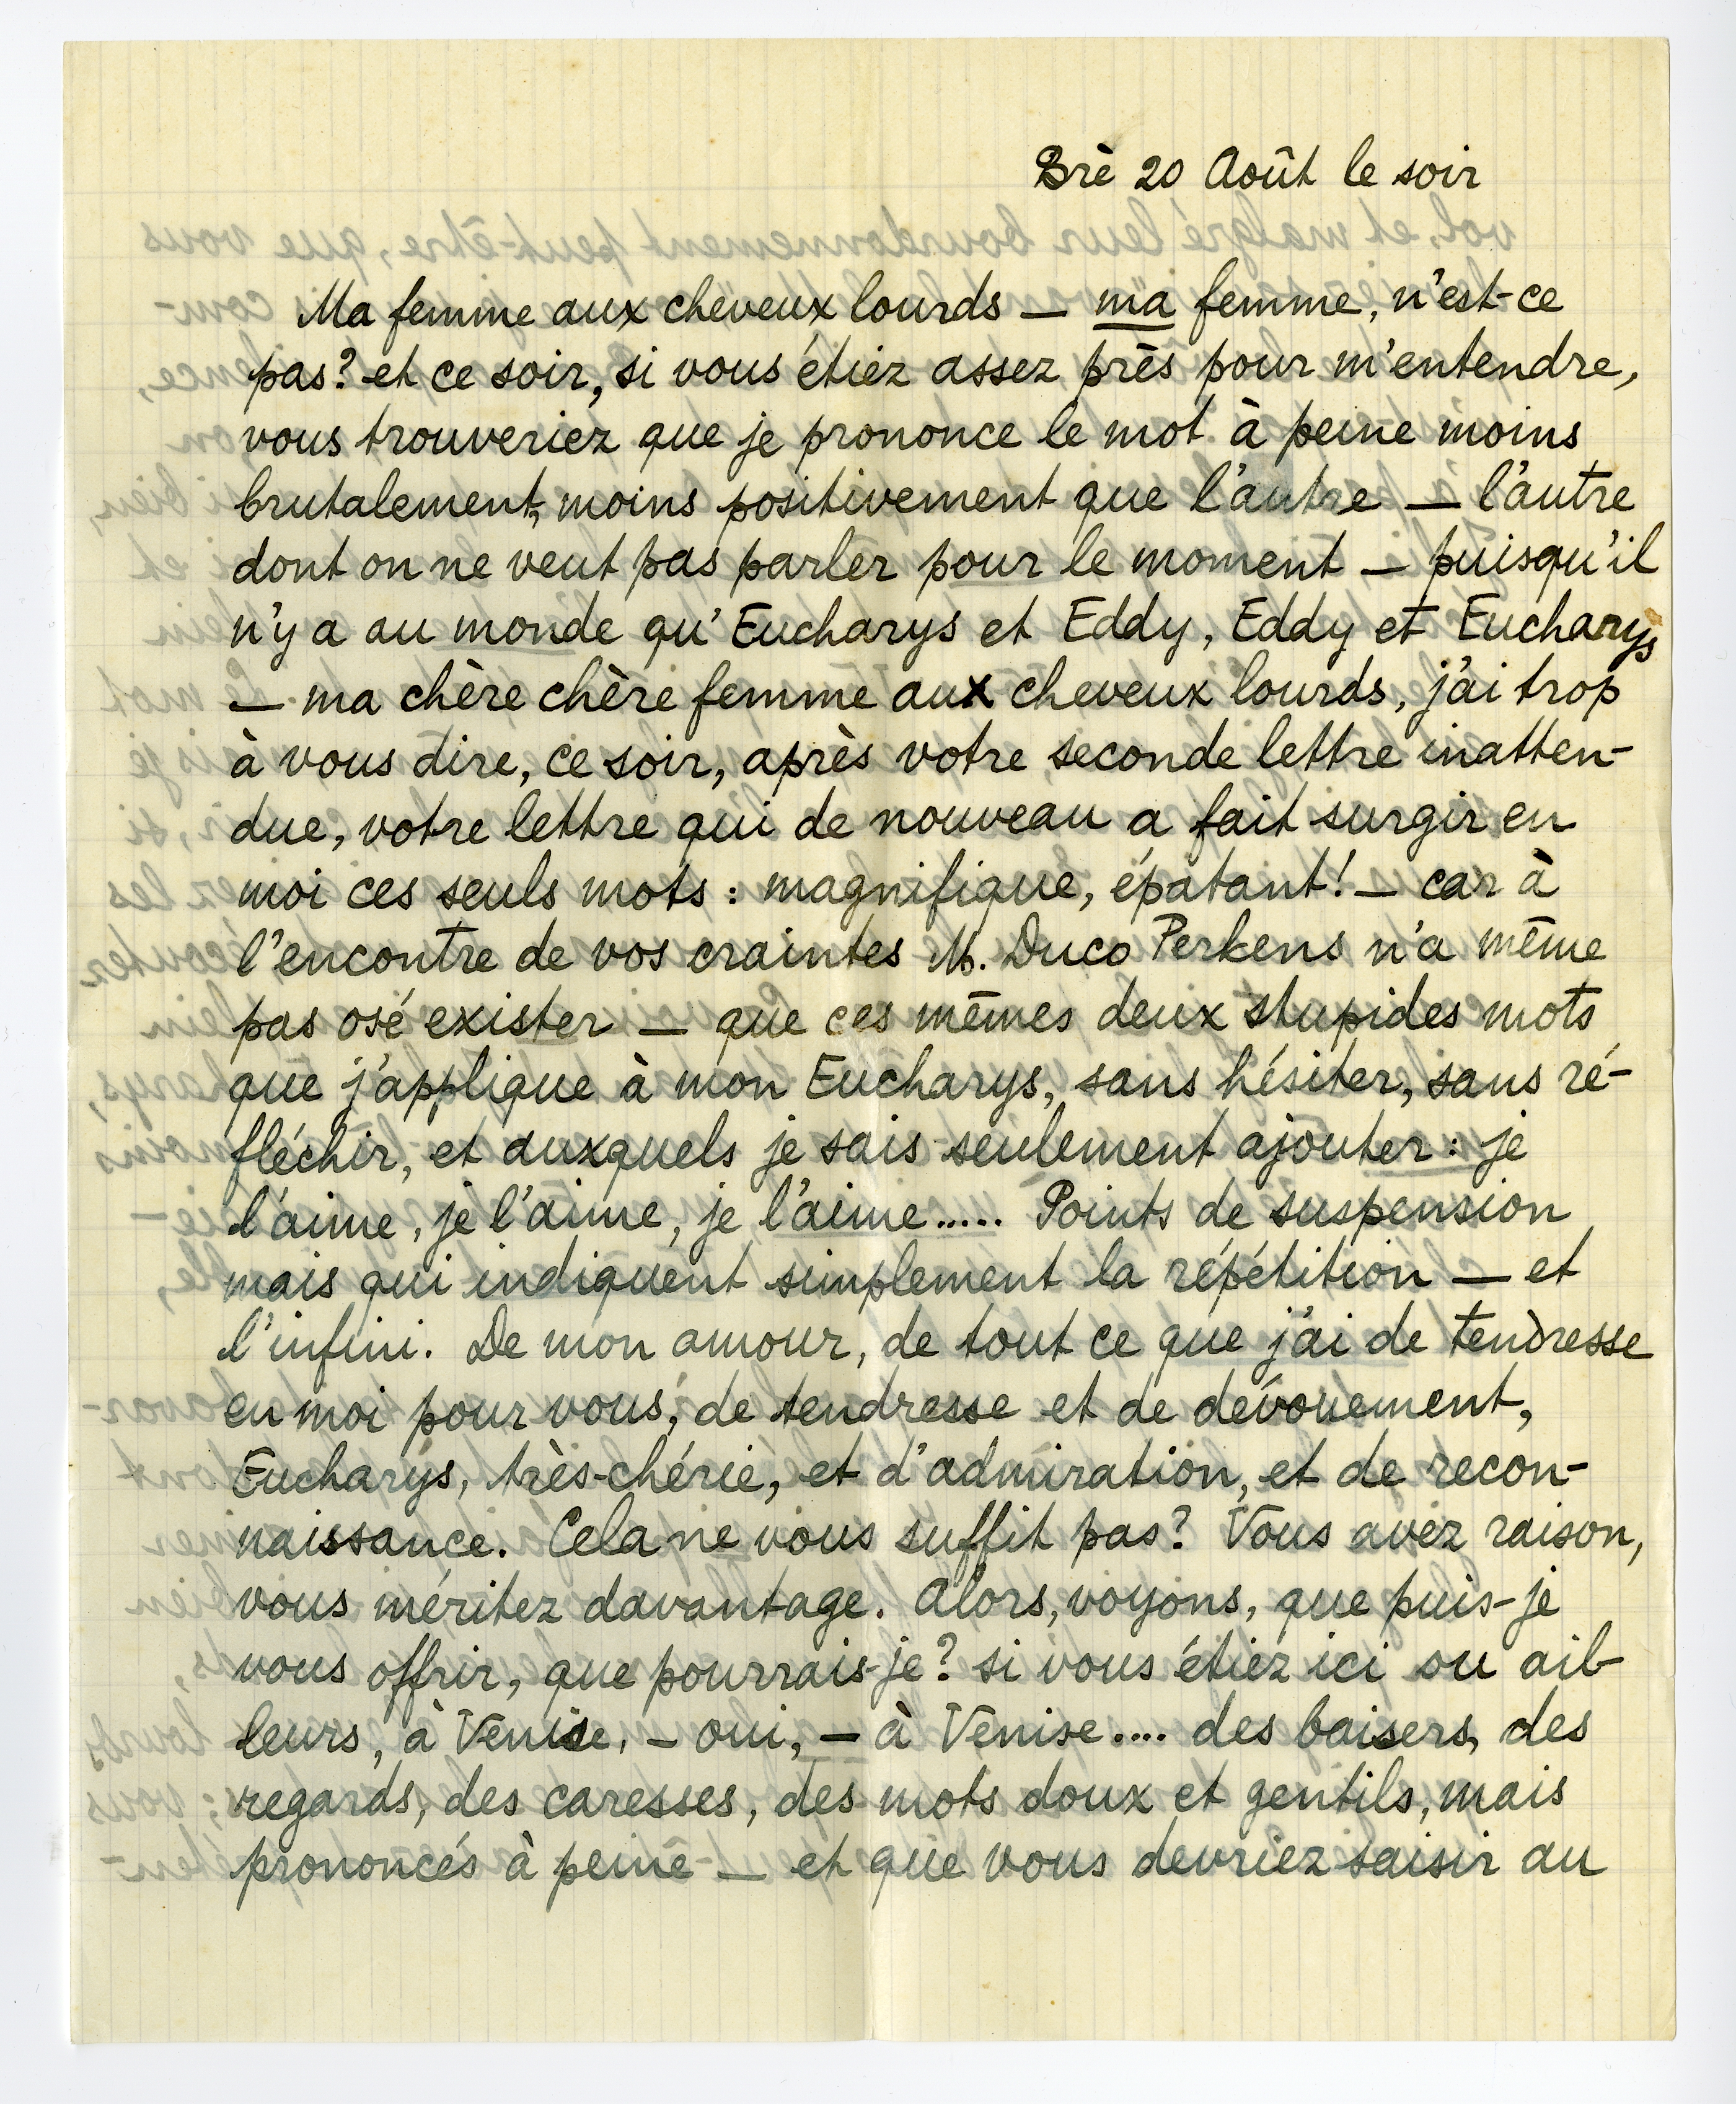 Brè 20 Août le soir
Ma femme aux cheveux lourds — ma femme, n'est-ce
pas? et ce soir, si vous étiez assez près pour m'entendre,
vous trouveriez que je prononce le mot à peine moins
brutalement, moins positivement que l'autre — l'autre
dont on ne veut pas parler pour le moment — puisqu'il
n'y a au monde qu'Eucharys et Eddy, Eddy et Eucharys
— ma chère chère femme aux cheveux lourds, j'ai trop
à vous dire, ce soir, après votre seconde lettre inatten-
due, votre lettre qui de nouveau a fait surgir en
moi ces seuls mots : magnifique, épatant! — car à
l'encontre de vos craintes M. Duco Perkens n'a même
pas osé exister — que ces mêmes deux stupides mots
que j'applique à mon Eucharys, sans hésiter, sans ré-
fléchir, et auxquels je sais seulement ajouter : je
l'aime, je l'aime, je l'aime..... Points de suspension
mais qui indiquent simplement la répétition — et
l'infini. De mon amour, de tout ce que j'ai de tendresse
en moi pour vous, de tendresse et de dévouement,
Eucharys, très-chérie, et d'admiration, et de recon-
naissance. Cela ne vous suffit pas? Vous avez raison,
vous méritez davantage. Alors, voyons, que puis-je
vous offrir, que pourrais-je? si vous étiez ici ou ail-
leurs, à Venise, — oui, — à Venise.... des baisers, des
regards, des caresses, des mots doux et gentils, mais
prononcés à peine — et que vous devriez saisir au